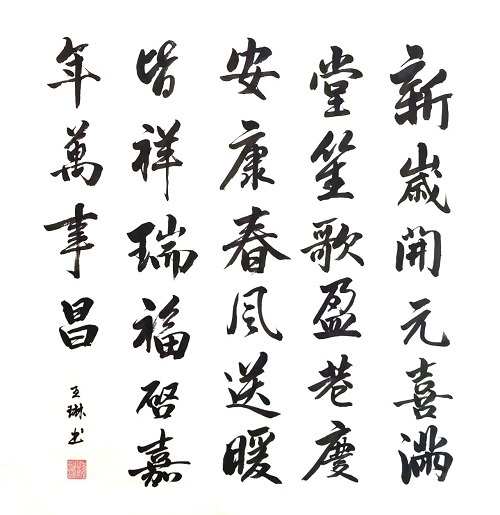 新歲開元喜滿
堂笙歌盈巷慶
安康春風送暖
皆祥瑞福啓嘉
年萬事昌
王琳书